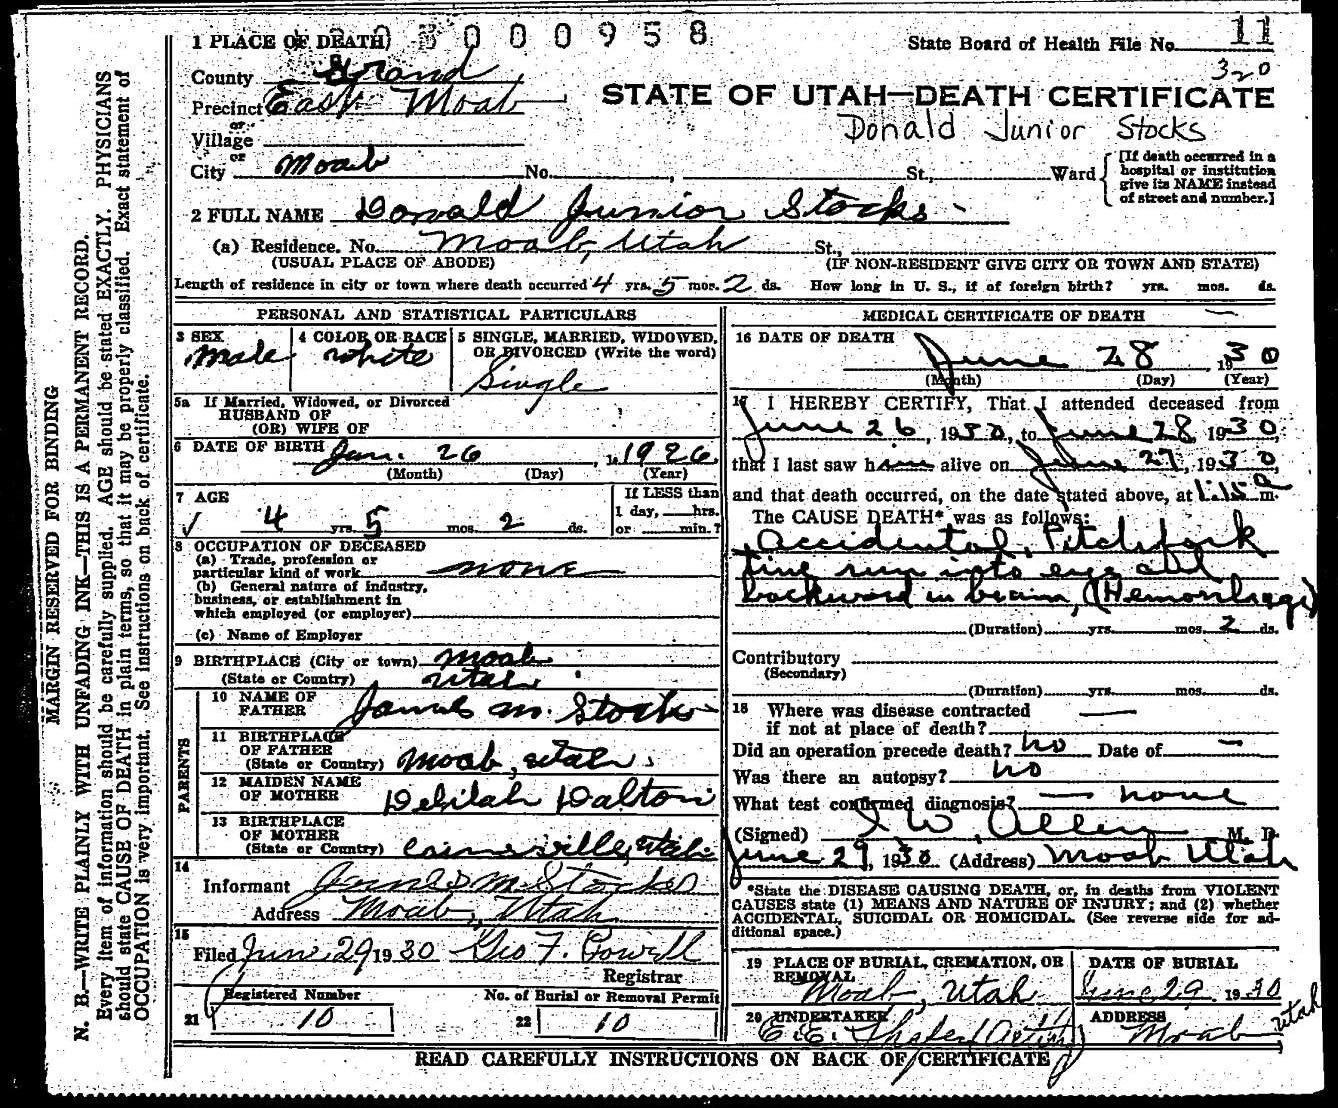 000958
1 PLACE OF DEATH
State Board of Health File No. 11
320
County Grand
Precinct East Moab
or
Village
or
City Moab No. , St., Ward
STATE OF UTAH—DEATH CERTIFICATE
Donald Junior Stocks
[If death occurred in a
hospital or institution
give its NAME instead
of street and number.]
2 FULL NAME Donald Junior Stocks
(a) Residence. No. Moab, Utah St.,
(USUAL PLACE OF ABODE) (IF NON-RESIDENT GIVE CITY OR TOWN AND STATE)
Length of residence in city or town where death occurred 4 yrs. 5 mos. 2 ds. How long in U. S., if of foreign birth? yrs. mos. ds.
PERSONAL AND STATISTICAL PARTICULARS
3 SEX
Male
4 COLOR OR RACE
white
5 SINGLE, MARRIED, WIDOWED,
OR DIVORCED (Write the word)
Single
5a If Married, Widowed, or Divorced
HUSBAND OF
(OR) WIFE OF
6 DATE OF BIRTH Jan. 26, 1926
(Month) (Day) (Year)
7 AGE
4 yrs. 5 mos. 2 ds.
If LESS than
1 day, hrs.
or min.?
8 OCCUPATION OF DECEASED
(a) Trade, profession or
particular kind of work none
(b) General nature of industry,
business, or establishment in
which employed (or employer)
(c) Name of Employer
9 BIRTHPLACE (City or town) Moab
(State or Country) Utah
PARENTS
10 NAME OF
FATHER James M. Stocks
11 BIRTHPLACE
OF FATHER
(State or Country) Moab, Utah.
12 MAIDEN NAME
OF MOTHER Delilah Dalton
13 BIRTHPLACE
OF MOTHER
(State or Country) Cainesville, Utah
14
Informant James M. Stocks
Address Moab, Utah
15
Filed June 29 1930 Geo F. Powell
Registrar
Registered Number
21 10
No. of Burial or Removal Permit
22 10
MEDICAL CERTIFICATE OF DEATH
16 DATE OF DEATH
June 28, 1930
(Month) (Day) (Year)
17 I HEREBY CERTIFY, That I attended deceased from
June 26, 1930, to June 28, 1930,
that I last saw him alive on June 27, 1930,
and that death occurred, on the date stated above, at 1:15 P m.
The CAUSE DEATH* was as follows:
Accidental, Pitchfork
tine run into eye and
backward in brain, (Hemorrhage)
(Duration) yrs. mos. 2 ds.
Contributory
(Secondary)
(Duration) yrs. mos. ds.
18 Where was disease contracted
if not at place of death? —
Did an operation precede death? no Date of —
Was there an autopsy? no
What test confirmed diagnosis? — none
(Signed) I W Allen M. D.
June 29, 1930 (Address) Moab Utah
*State the DISEASE CAUSING DEATH, or, in deaths from VIOLENT
CAUSES state (1) MEANS AND NATURE OF INJURY; and (2) whether
ACCIDENTAL, SUICIDAL OR HOMICIDAL. (See reverse side for ad-
ditional space.)
19 PLACE OF BURIAL, CREMATION, OR
REMOVAL
Moab, Utah
DATE OF BURIAL
June 29, 1930
20 UNDERTAKER
E. E. (Acting)
ADDRESS
Moab Utah
READ CAREFULLY INSTRUCTIONS ON BACK OF CERTIFICATE
MARGIN RESERVED FOR BINDING
N. B.—WRITE PLAINLY WITH UNFADING INK—THIS IS A PERMANENT RECORD.
Every item of information should be carefully supplied. AGE should be stated EXACTLY. PHYSICIANS
should state CAUSE OF DEATH in plain terms, so that it may be properly classified. Exact statement of
OCCUPATION is very important. See instructions on back of certificate.